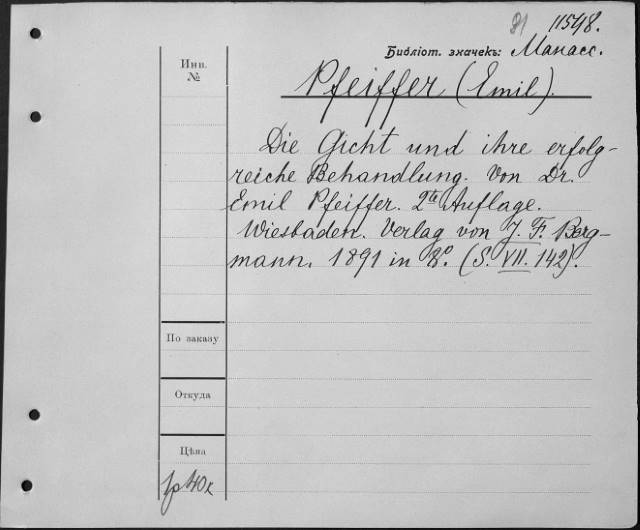 91 11548.
Библіот. значекъ: Манасс.
Инв.
№
Pfeiffer (Emil).
Die Gicht und ihre erfolg-
reiche Behandlung. Von Dr.
Emil Pfeiffer. 2te Auflage.
Wiesbaden. Verlag von J. F. Berg-
mann. 1891 in 8°. (S. VII. 142).
По заказу
Откуда
Цѣна
1р 40к